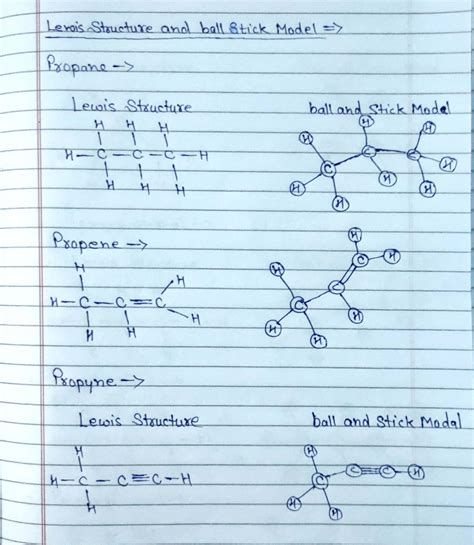 Lewis Structure and ball & Stick Model ⇒
Propane →
Lewis Structure ball and Stick Model
H H H
H–C–C–C–H
H H H
H H
H C C C H
H H H H
Propene →
H H
H–C–C=C
H H H
H H
H C H
C
C H
H H
Propyne →
Lewis Structure ball and Stick Modal
H
H–C–C≡C–H
H
H
C C≡C H
H H